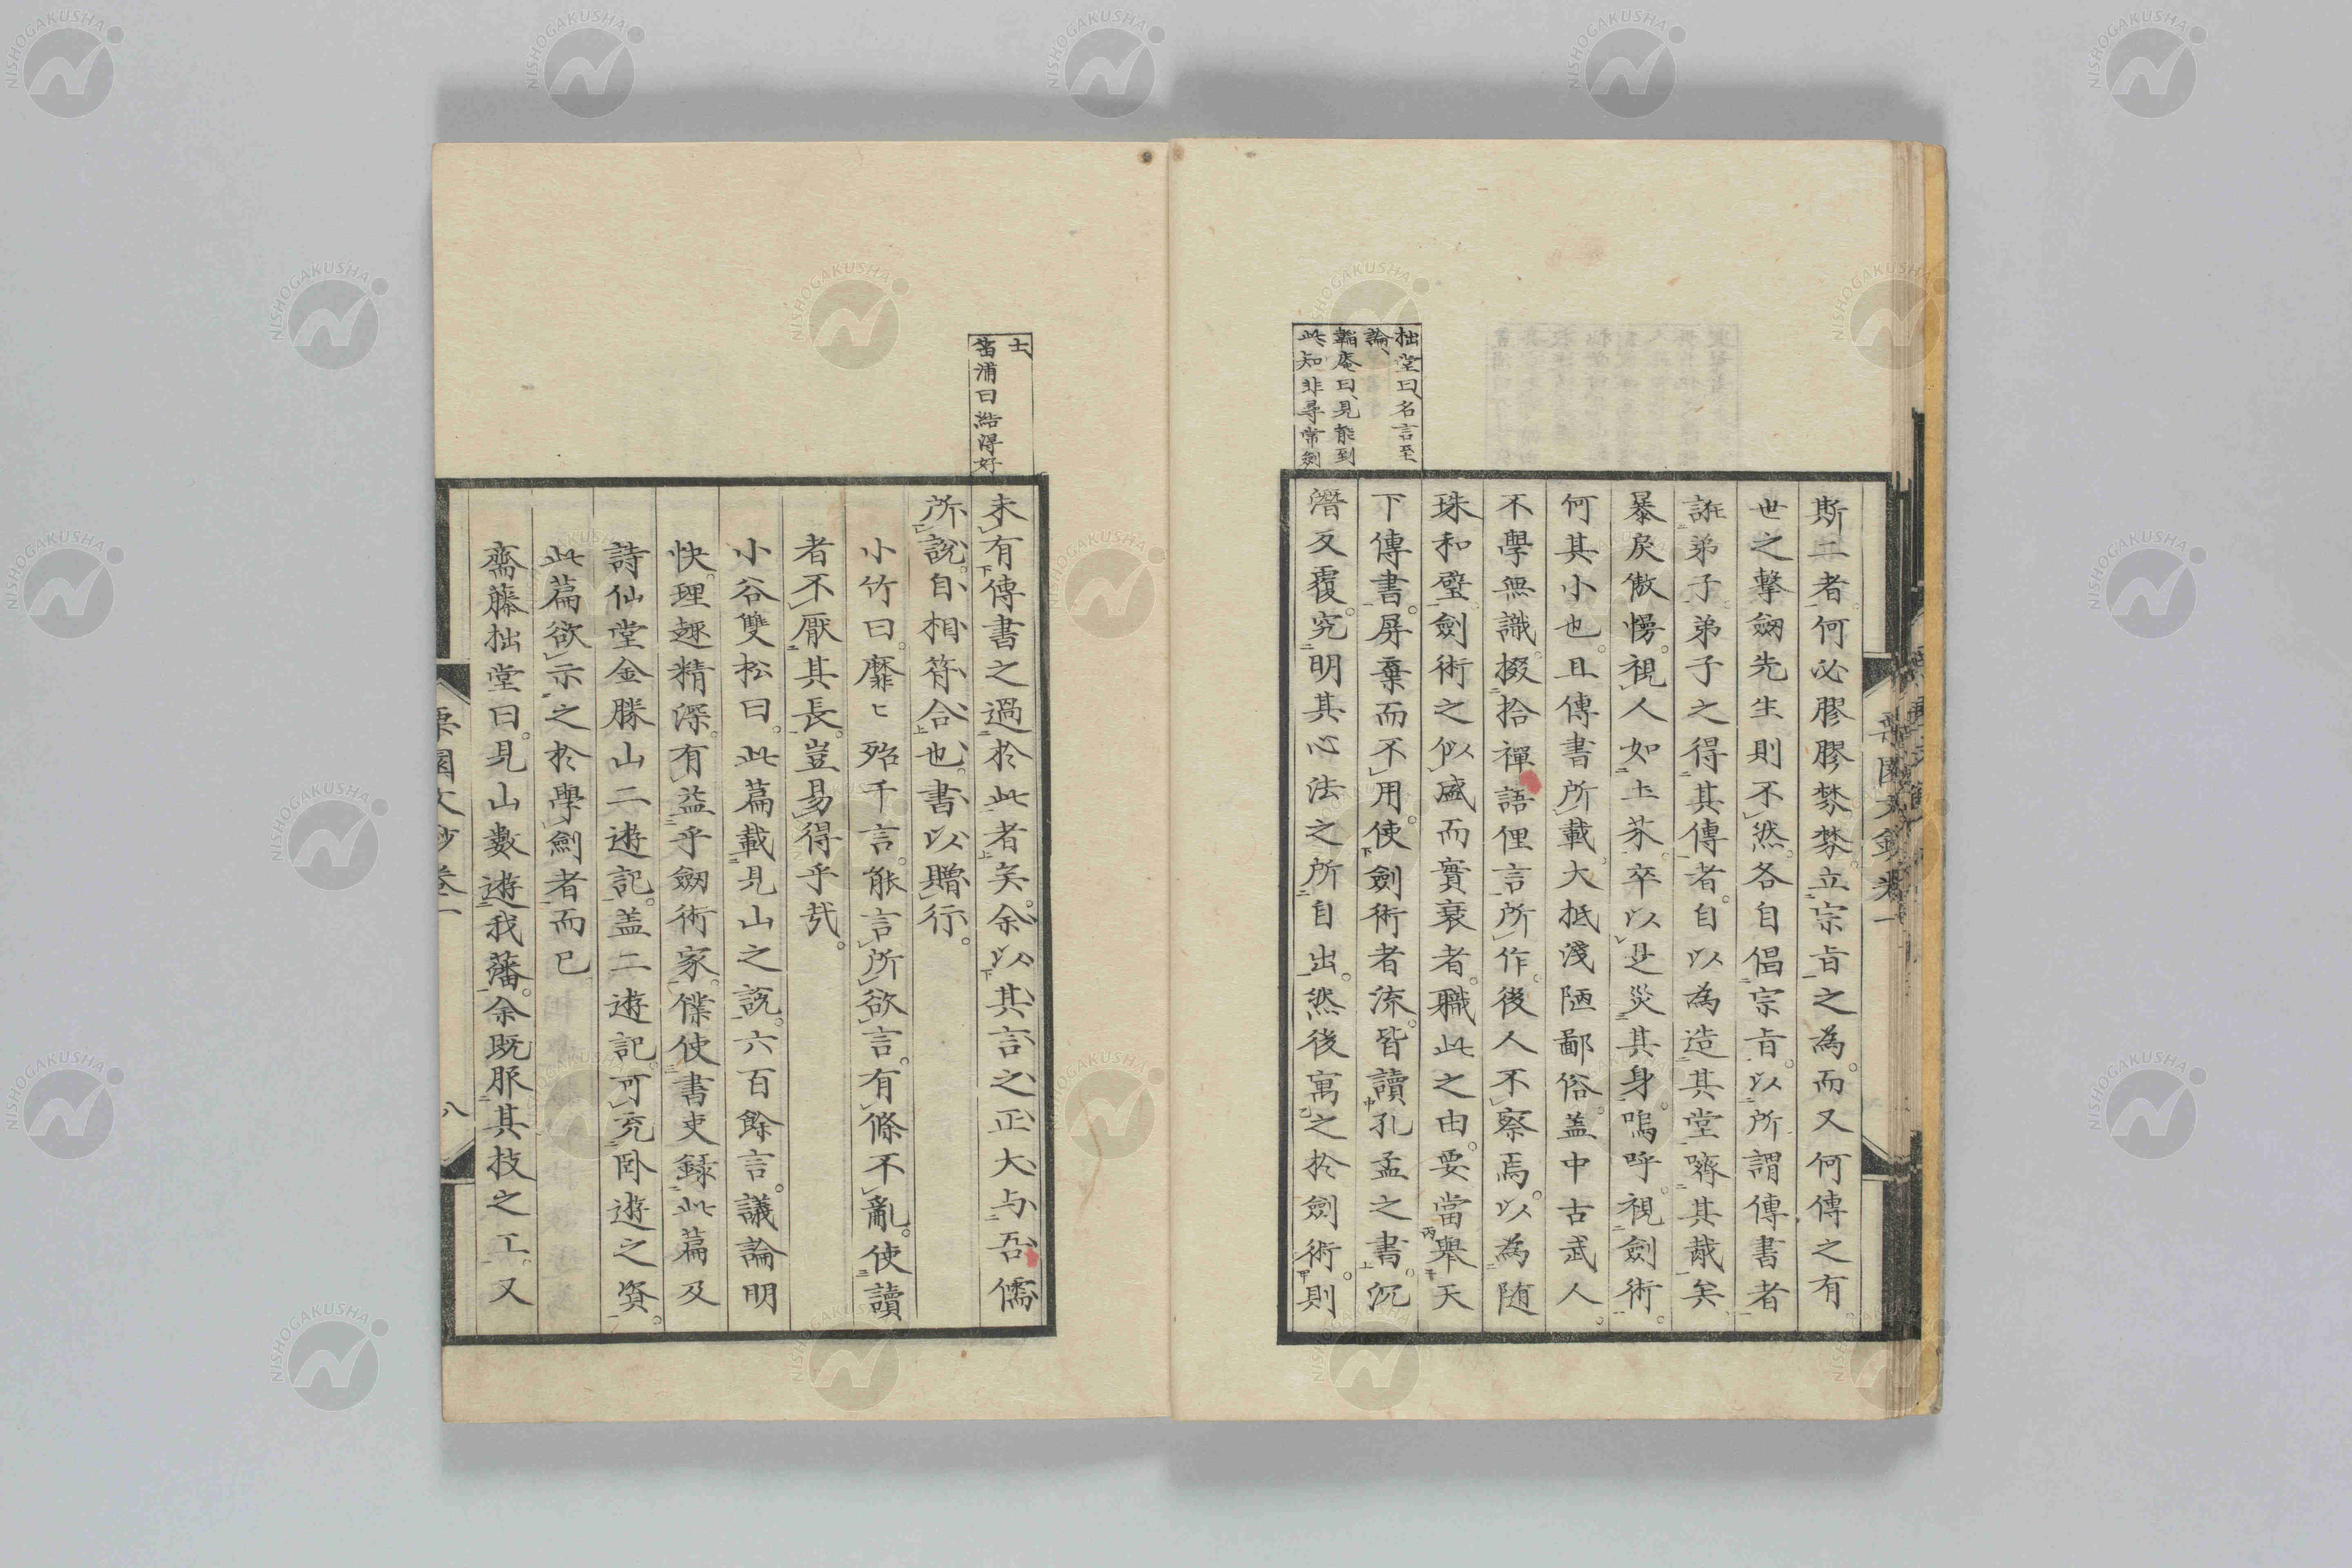 拙堂曰、名言至
論、
韜庵曰、見能到
此、知非尋常劍
斯二者。何必膠膠棼棼。立宗旨之為。而又何傳之有。
世之擊劒先生則不然。各自倡宗旨。以所謂傳書者
誑弟子。弟子之得其傳者。自以為造其堂嚌其胾矣
暴戾傲慢。視人如土芥。卒以是災其身。嗚呼。視劍術。
何其小也。且傳書所載。大抵淺陋鄙俗。蓋中古武人。
不學無識。掇拾禪語俚言所作。後人不察焉。以為随
珠和璧。劍術之似盛而實衰者。職此之由。要當舉天
下傳書。屏棄而不用。使劍術者流。皆讀孔孟之書。沉
潛反覆。究明其心法之所自出。然後寓之於劍術。則
士、
笛浦曰、結得好
未有傳書之過於此者矣。余以其言之正大与吾儒
所說。自相符合也。書以贈行。
小竹曰。靡ヒ殆千言。能言所欲言。有條不亂。使讀
者不厭其長。豈易得乎哉。
小谷雙松曰。此篇載見山之說。六百餘言。議論明
快。理趣精深。有益乎劒術家。僕使書吏録此篇及
詩仙堂金勝山二遊記。盖二遊記。可充卧遊之資。
此篇欲示之於學劍者而已
齋藤拙堂曰。見山數遊我藩。余既服其技之工。又
八